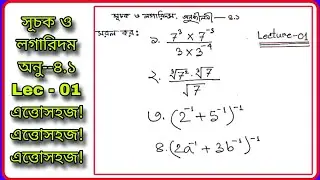 সূচক ও
লগারিদম
অনু--৪.১
Lec - 01
এত্তোসহজ!
এত্তোসহজ!
এত্তোসহজ!
সূচক ও লগারিদম. অনুশীলনী--৪.১
সরল কর:
Lecture-01
১. 7³ × 7⁻³ / 3 × 3⁻⁴
২. ∛7² · ∛7 / √7
৩. (2⁻¹ + 5⁻¹)⁻¹
৪. (2a⁻¹ + 3b⁻¹)⁻¹